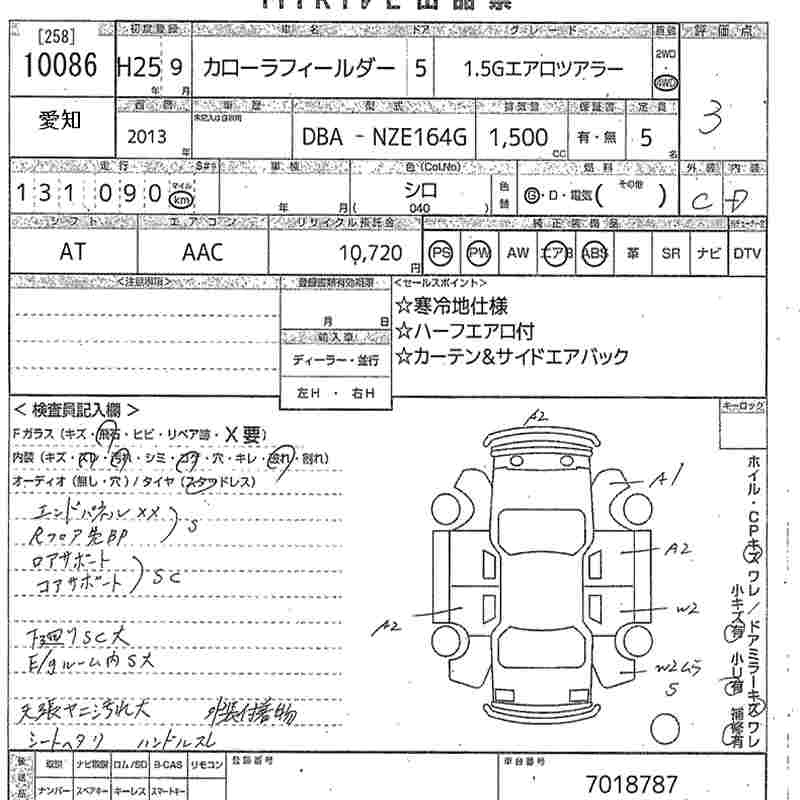 [258] 初度登録 車名 ドア グレード 評価点
10086 H25 9 カローラフィールダー 5 1.5Gエアロツアラー 2WD 4WD
年 月
愛知 西暦 車歴 型式 排気量 保証書 定員 3
2013 年 DBA - NZE164G 1,500 cc 有・無 5 名
走行 車検 色(Col.No) 燃料 外装 内装
131090 マイル km 年 月 シロ ( 040 ) 色替 G・D・電気( その他 ) C D
シフト エアコン リサイクル預託金 純正装備品
AT AAC 10,720 円 PS PW AW エアB ABS 革 SR ナビ DTV
<注意事項> 登録書類有効期限 <セールスポイント>
月 日 ☆寒冷地仕様
輸入車 ☆ハーフエアロ付
ディーラー・並行 ☆カーテン&サイドエアバック
左H ・ 右H
キーロック
< 検査員記入欄 >
Fガラス (キズ・飛石・ヒビ・リペア跡・X要)
内装 (キズ・スレ・汚れ・シミ・コゲ・穴・キレ・破れ・割れ)
オーディオ (無し・穴) / タイヤ (スタッドレス)
エンドパネルXX
Rフロア先BP S
ロアサポート
コアサポート SC
下回りSC大
E/gルーム内S大
天張ヤニ汚れ大 外装付着物
シートヘタリ ハンドルスレ
A2
A1
A2
A2
W2
W2ムラ
S
ホイル・CPキズ ワレ / ドアミラーキズ ワレ
小キズ有 小U有 補修有
後送品 取説 ナビ取説 ロム/SD B-CAS リモコン 登録番号 車台番号
ナンバー スペアキー キーレス スマートキー 7018787